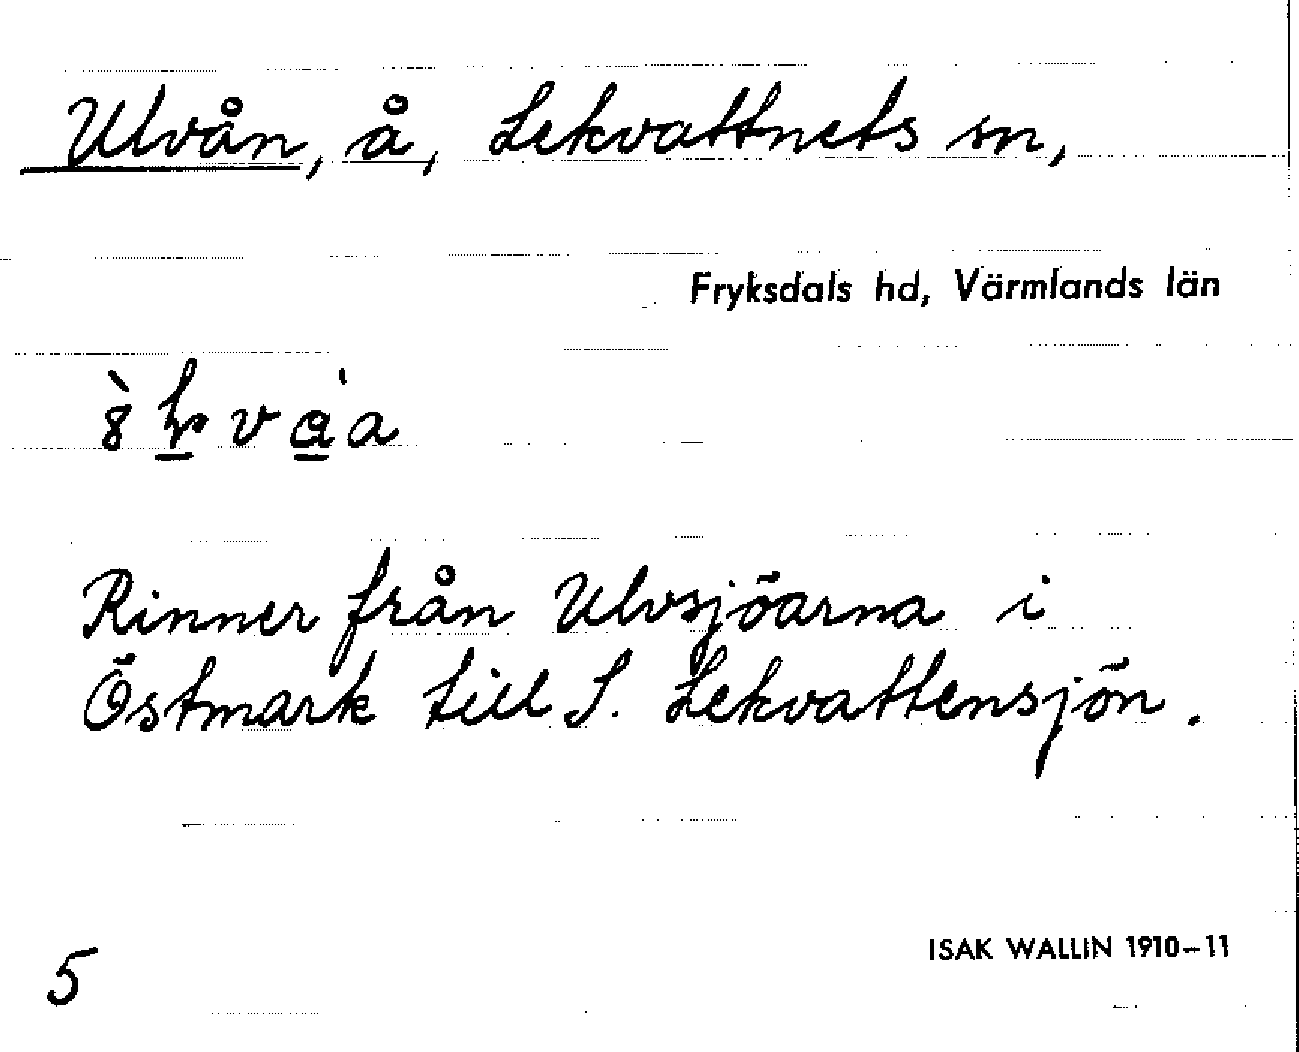 Ulvån, å, Lekvattnets sn,
Fryksdals hd, Värmlands län
Rinner från Ulvsjöarna i
Östmark till S. Lekvattensjön.
5
ISAK WALLIN 1910–11